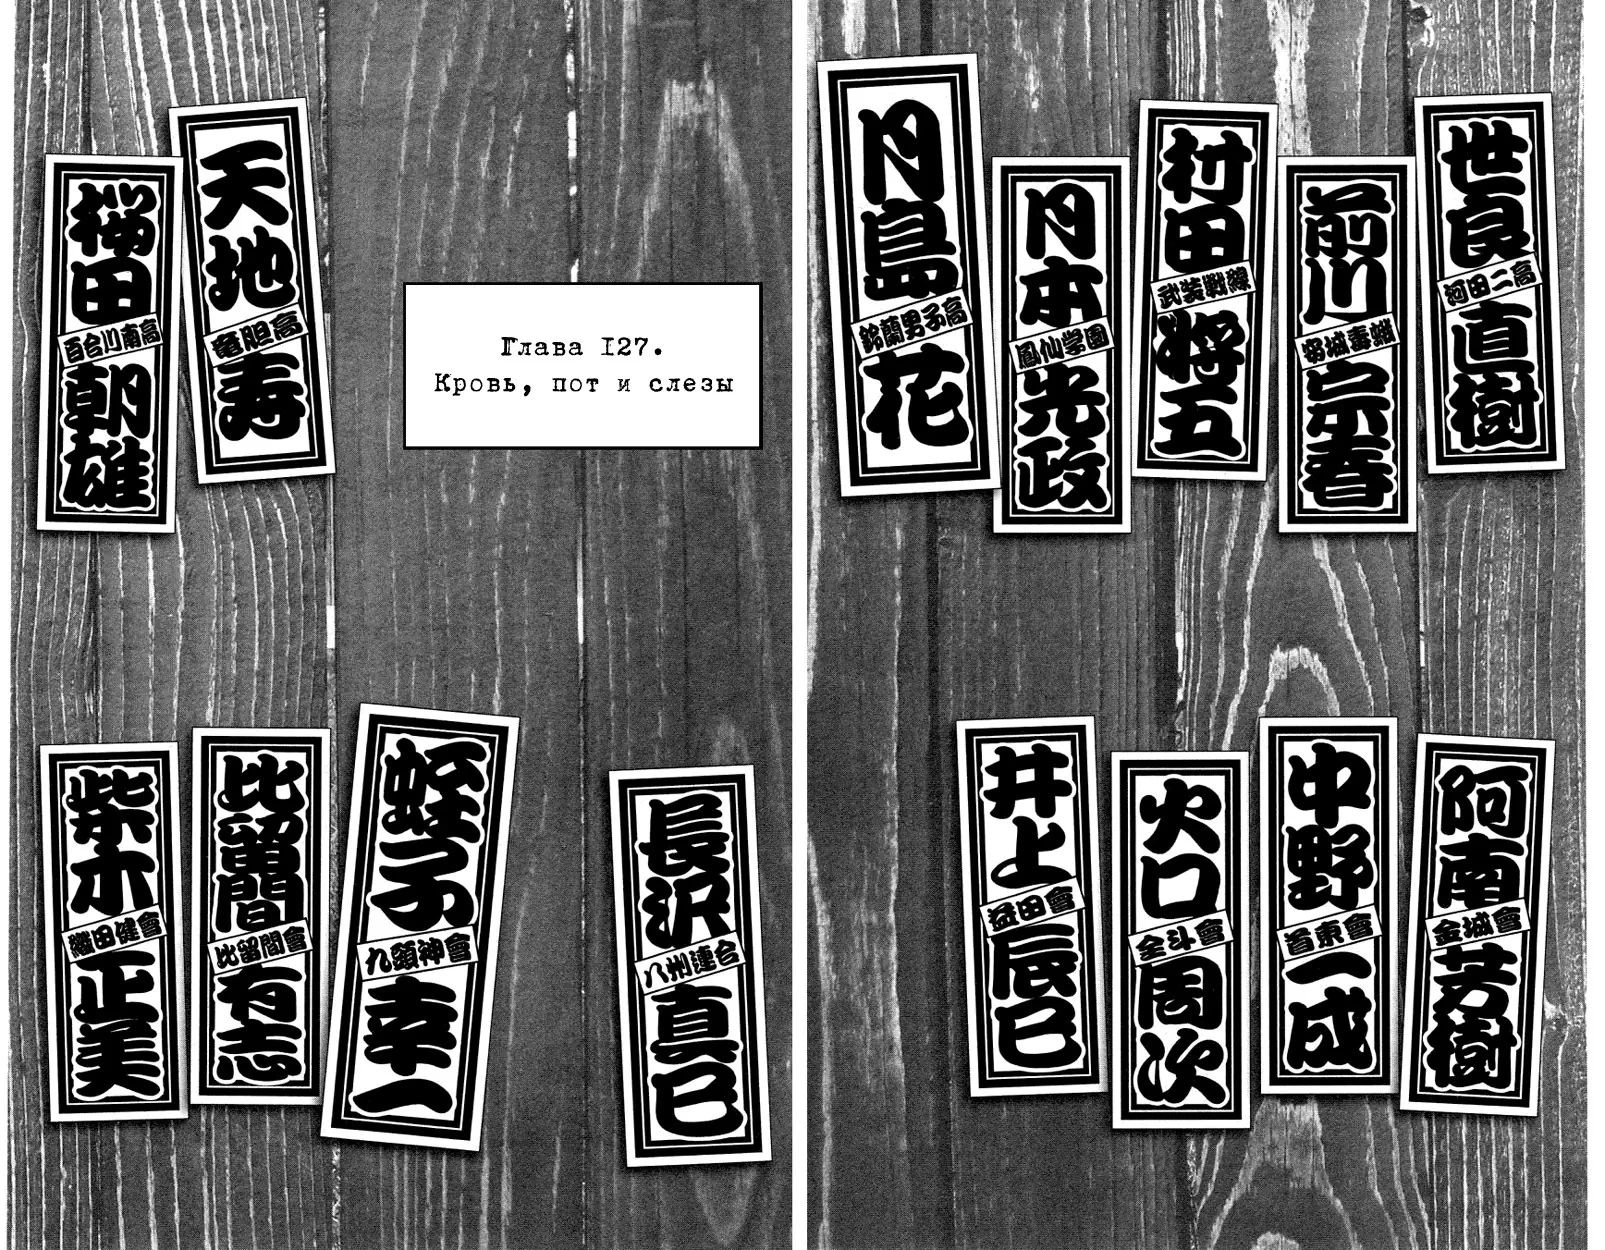 世良
河田二高
直樹
前川
宗春
村田
武装戦線
将五
月本
鳳仙学園
光政
月島
鈴蘭男子高
花
阿南
金城會
芳樹
中野
首東會
一成
火口
全斗會
周次
井上
益田會
辰巳
Глава 127.
Кровь, пот и слезы
天地
竜胆高
寿
桜田
百合川南高
朝雄
長沢
八州連合
真巳
蛭子
九頭神會
幸一
比留間
比留間會
有志
柴木
織田健會
正美